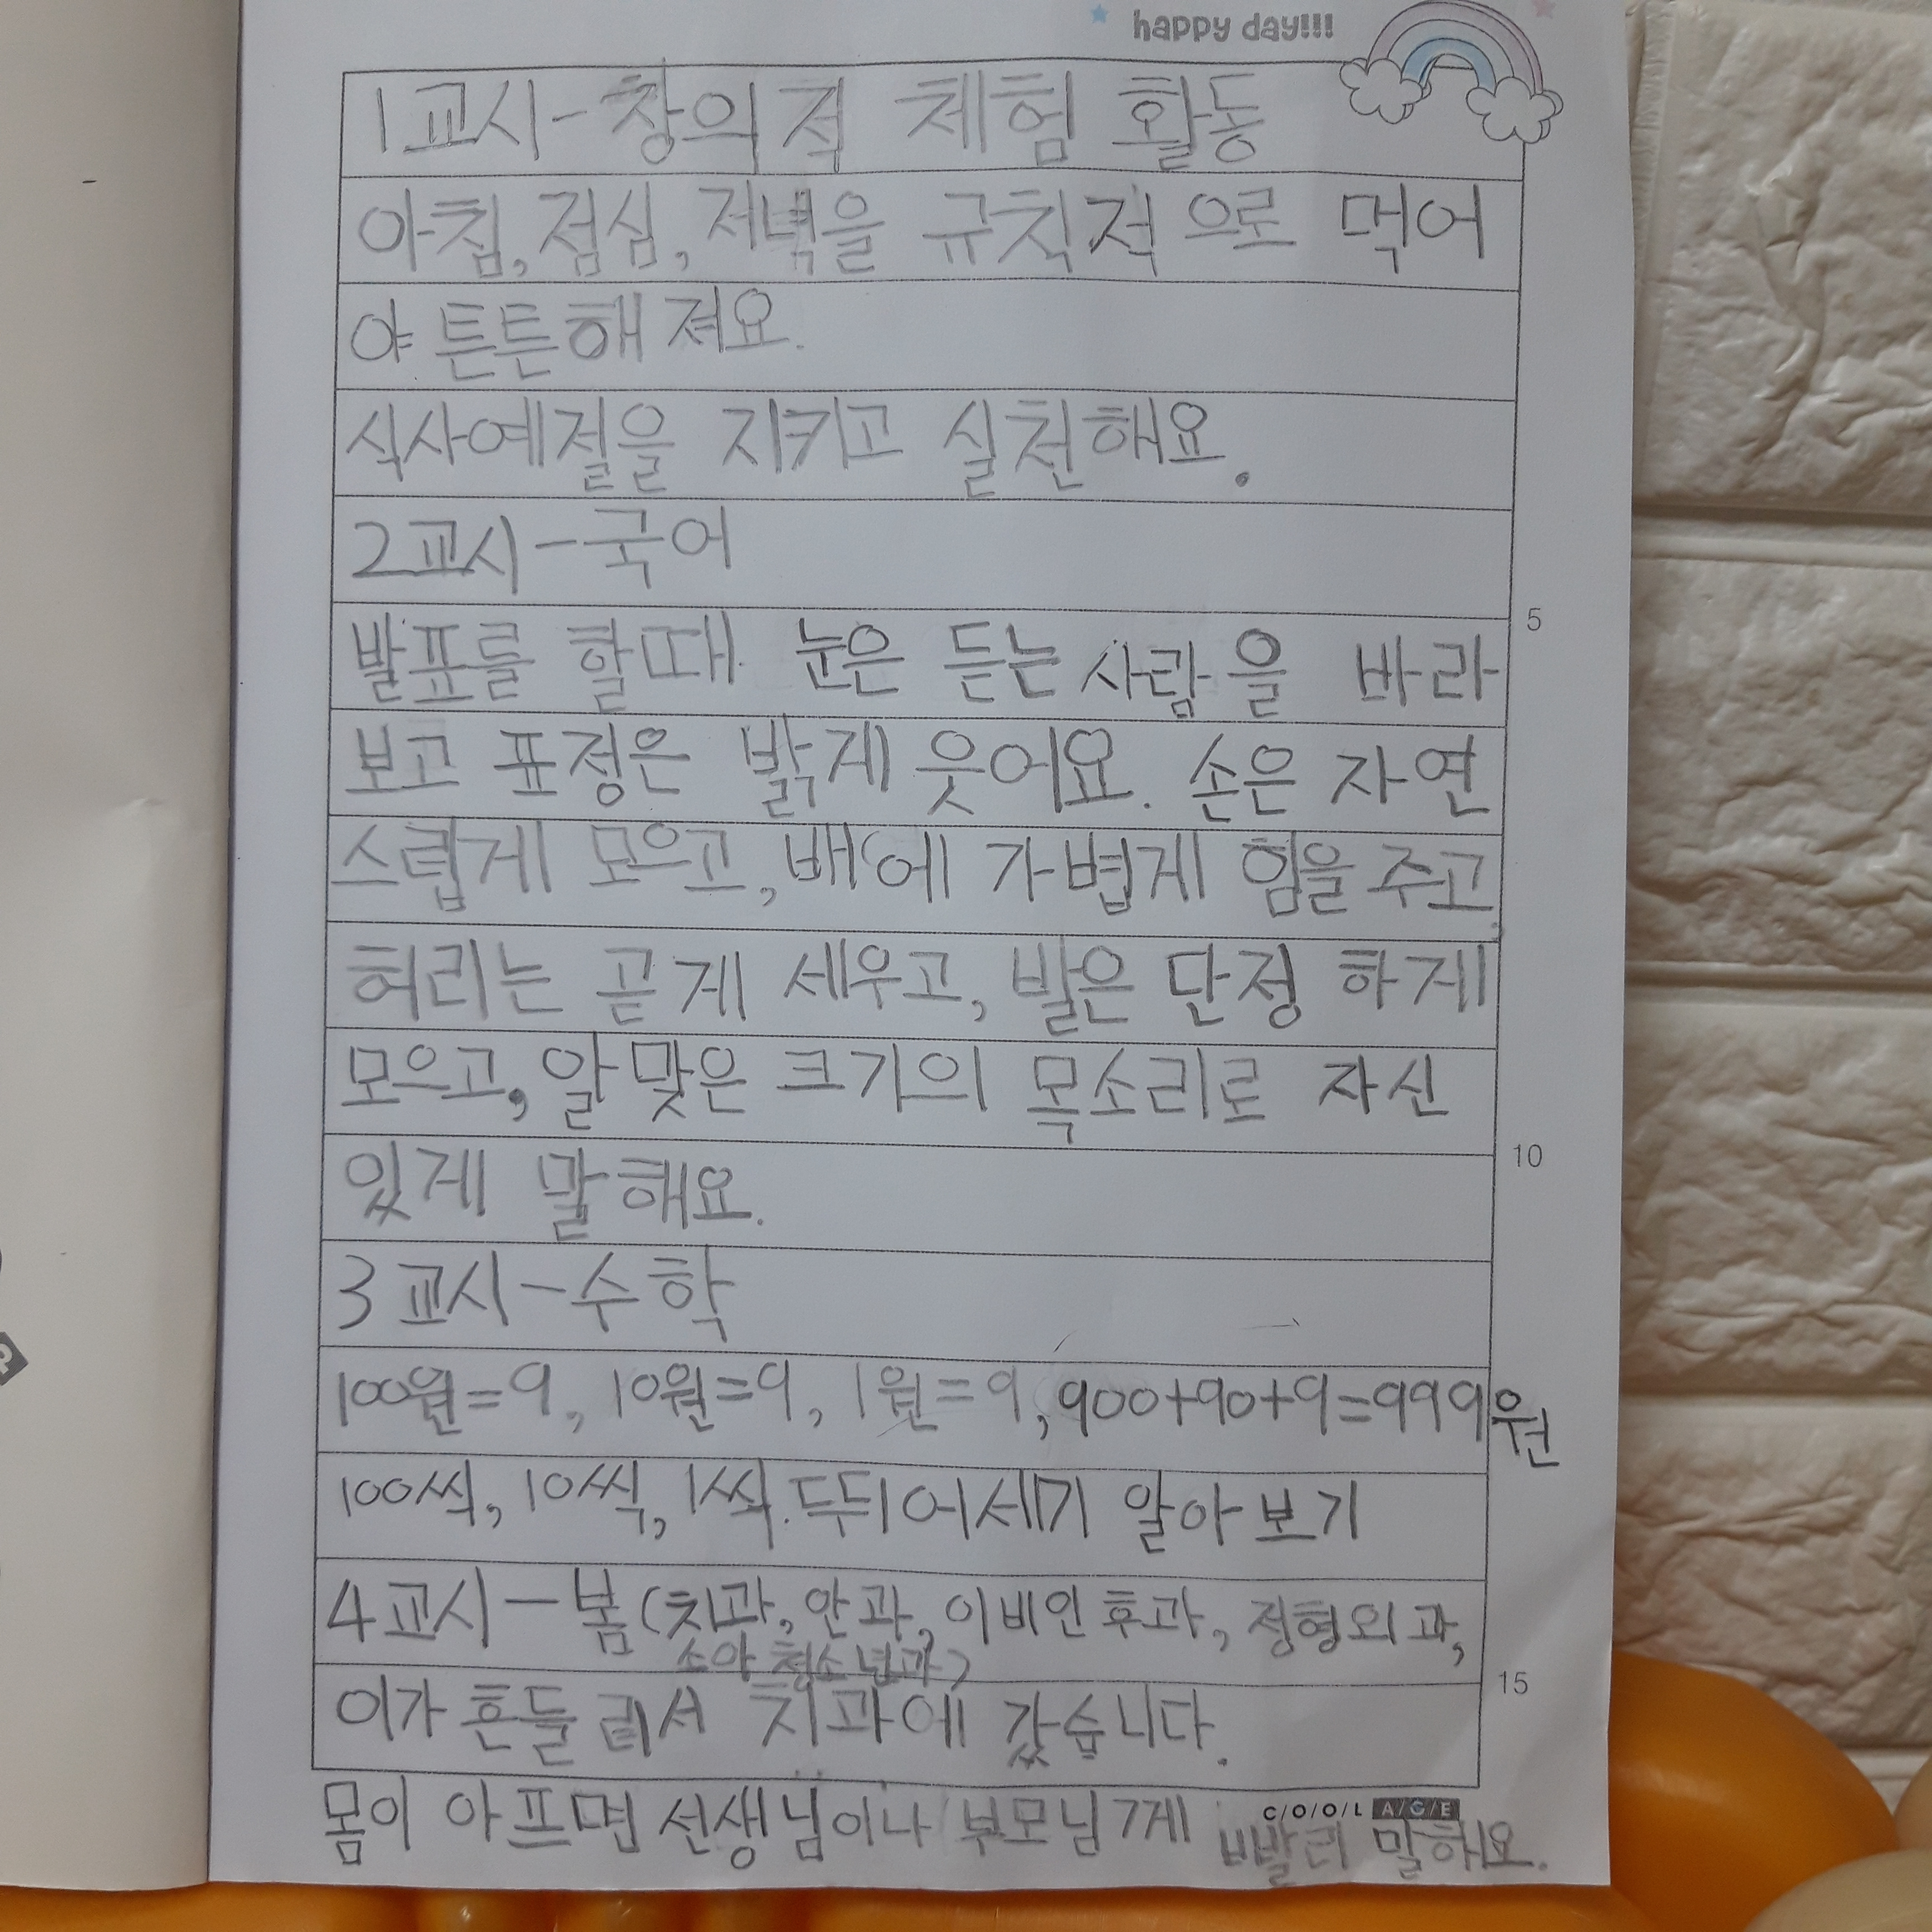 happy day!!!
1교시-창의적 체험 활동
아침,점심,저녁을 규칙적으로 먹어
야 튼튼해져요.
식사예절을 지키고 실천해요.
2교시-국어
5
발표를 할때 눈은 듣는 사람을 바라
보고 표정은 밝게 웃어요. 손은 자연
스럽게 모으고, 배에 가볍게 힘을 주고
허리는 곧게 세우고, 발은 단정하게
모으고, 알맞은 크기의 목소리로 자신
10
있게 말해요.
3교시-수학
100원=9, 10원=9, 1원=9, 900+90+9=999원
100씩, 10씩, 1씩. 뚜뛰어세기 알아보기
4교시-봄(치과, 안과, 이비인후과, 정형외과,
소아청소년과)
15
이가 흔들려서 치과에 갔습니다.
C/O/O/L A/G/E
몸이 아프면 선생님이나 부모님께 빨리 말해요.